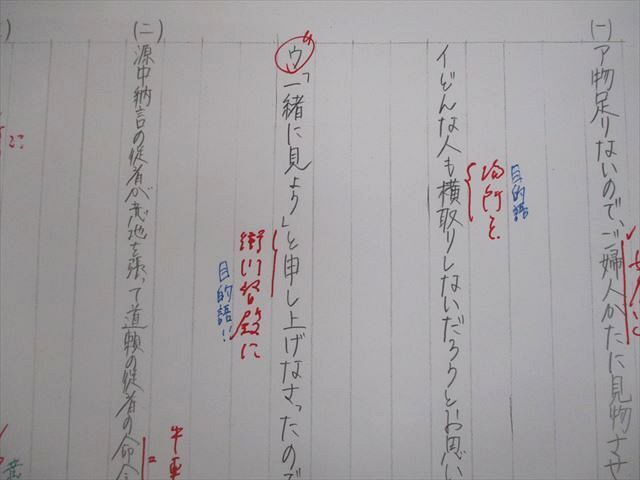 (一)ア物足りないので、ご婦人かたに見物させ
イどんな人も横取りしないだろうとお思い
場所を
目的語
ウ「一緒に見よう」と申し上げなさったので
衛門督殿に
目的語!!
(二)源中納言の従者が意地を張って道頼の従者の命令
牛車